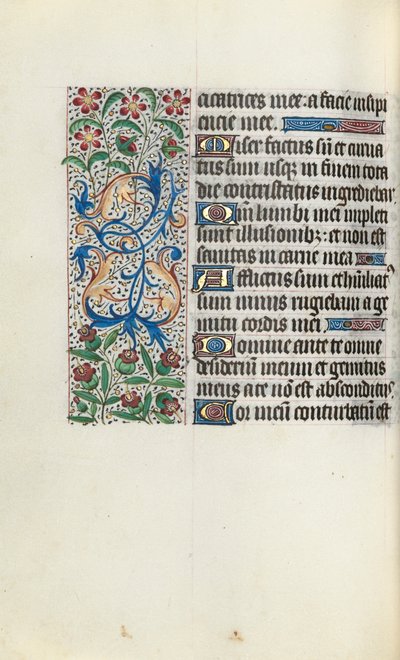 cicatrices mee: a facie insipi
encie mee.
Miser factus sū et curua
tus sum usq; in finem tota
die contristatus ingrediebar
Qm̄ lumbi mei impleti
sunt illusionibz: et non est
sanitas in carne mea
Afflictus sum et humiliat⁹
sum nimis rugiebam a ge
mitu cordis mei
Domine ante te omne
desiderium meum et gemitus
meus a te nō est absconditus
Cor meū conturbatū est